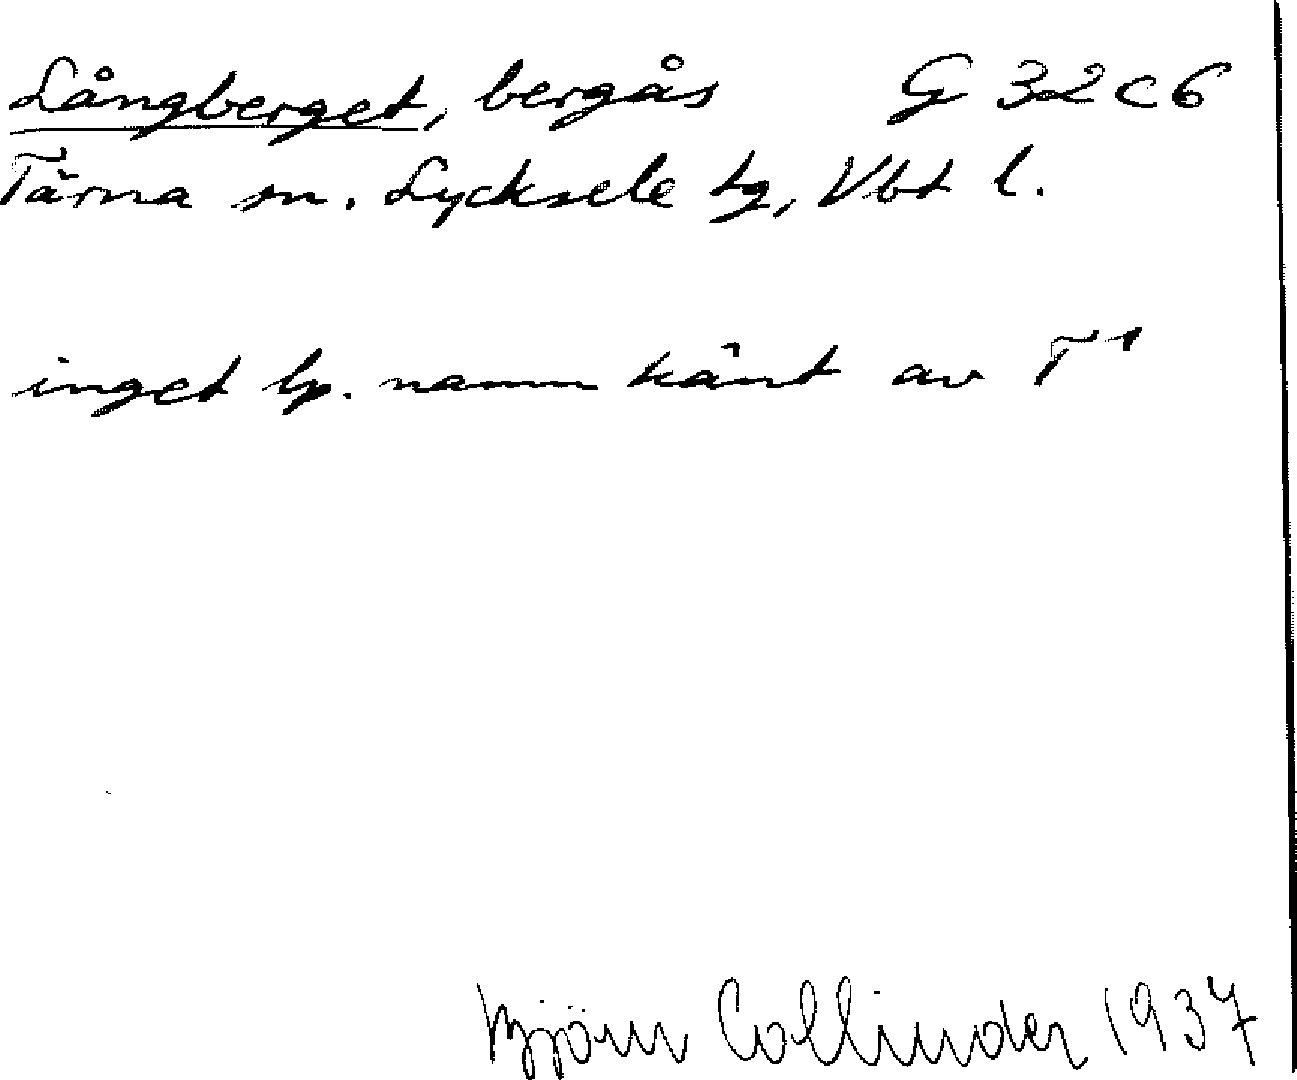 Långberget, bergås G 32 C 6
Tärna sn. Lycksele tg, Vbt l.
inget lp. namn känt av T 1
Björn Collinder 1937